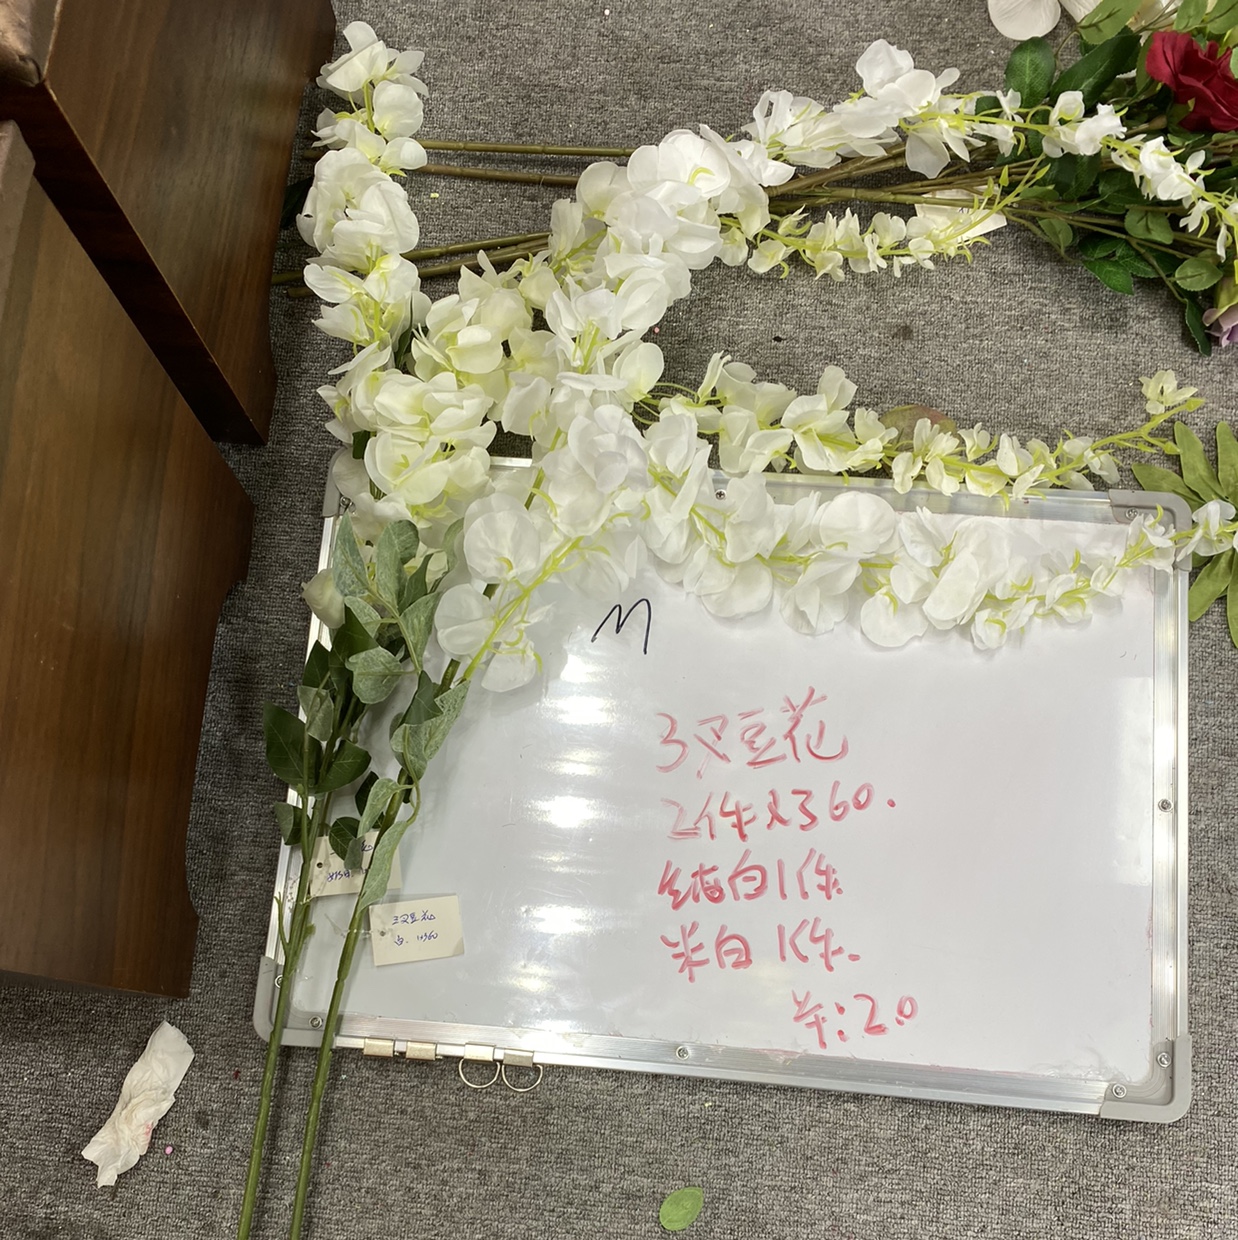 M
3叉豆花
2件×360.
纯白1件
米白1件.
单:2.0
三叉豆花
白. 1×360